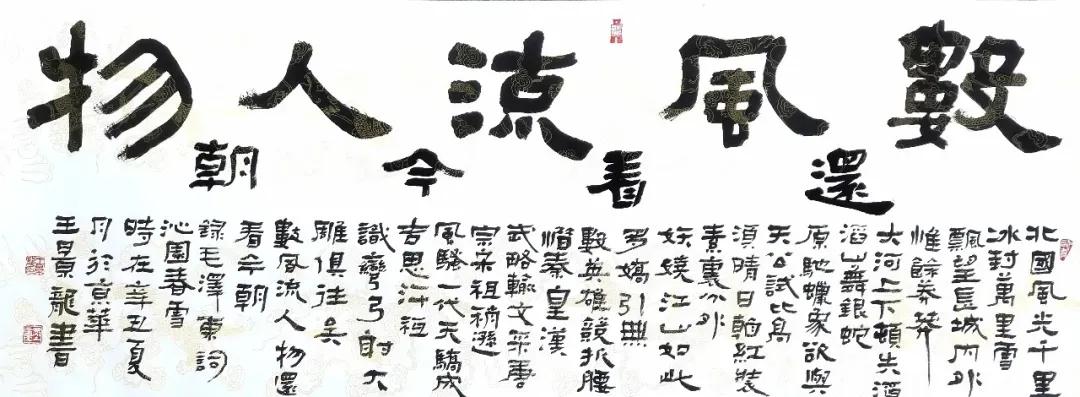 數風流人物
還看今朝
北國風光千里
冰封萬里雪
飄望長城內外
惟餘莽莽
大河上下頓失滔
滔山舞銀蛇
原馳蠟象欲與
天公試比高
須晴日看紅裝
素裹分外
妖嬈江山如此
多嬌引無
數英雄競折腰
惜秦皇漢
武略輸文采唐
宗宋祖稍遜
風騷一代天驕成
吉思汗祗
識彎弓射大
雕俱往矣
數風流人物還
看今朝
錄毛澤東詞
沁園春雪
時在辛丑夏
月於京華
王景龍書